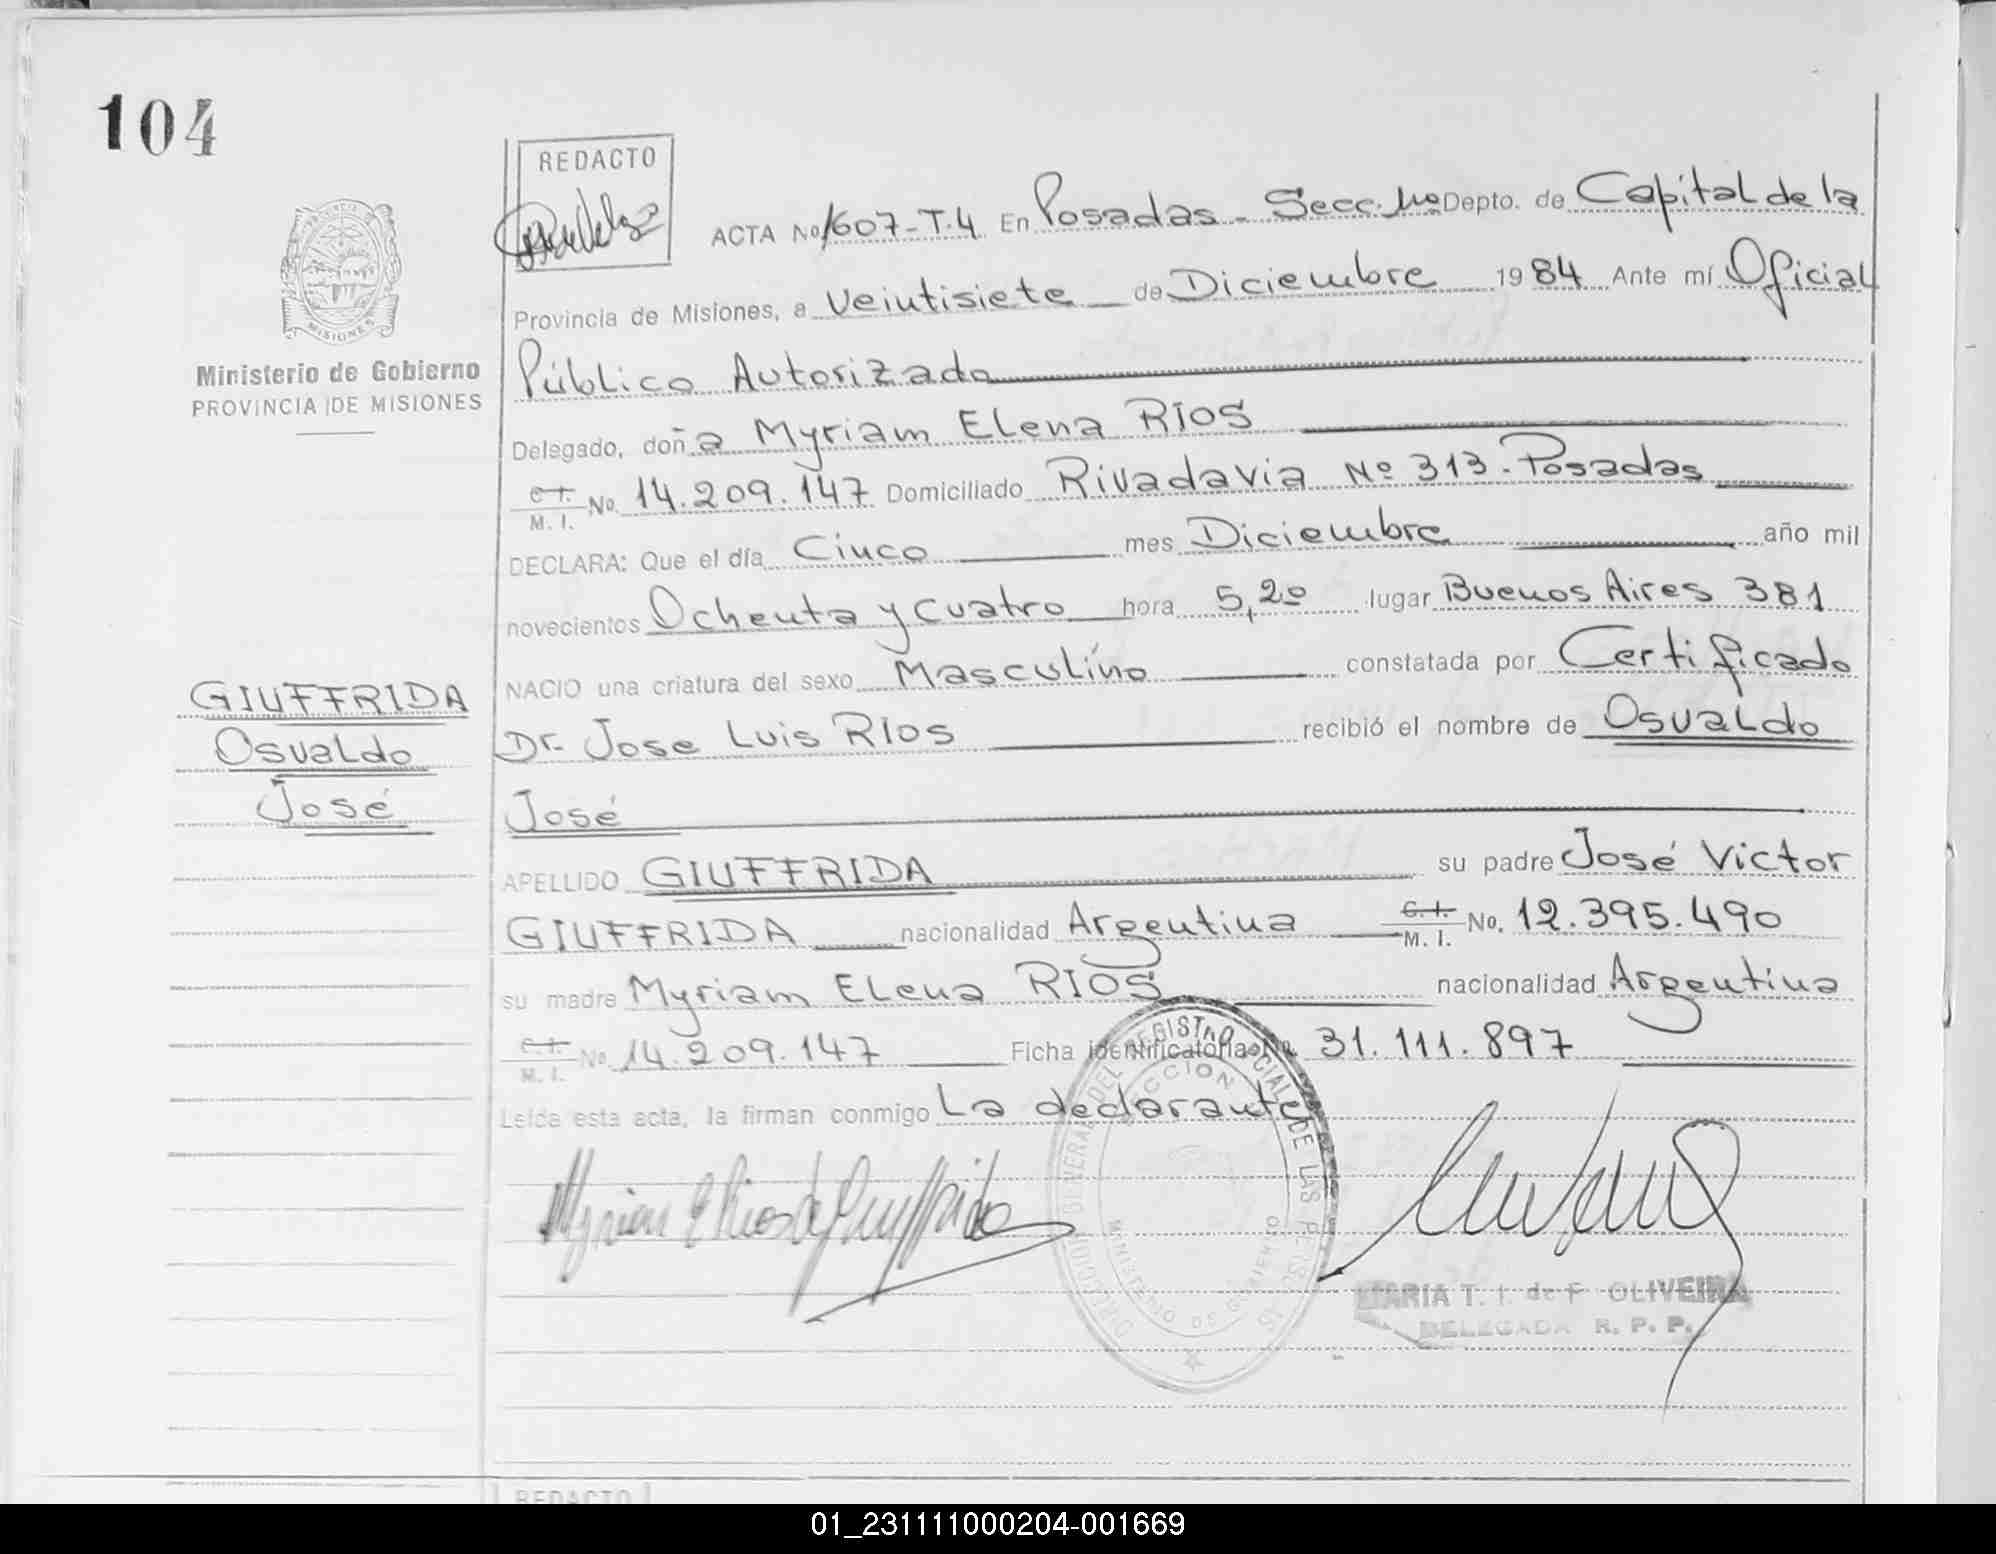 104
REDACTO
ACTA No 1607-T.4 En Posadas - Secc. 1ra Depto. de Capital de la
Provincia de Misiones, a veintisiete de Diciembre 1984 Ante mí Oficial
Público Autorizado
Delegado, doña Myriam Elena RIOS
C.I. M. I. No. 14.209.147 Domiciliado Rivadavia Nº 313 - Posadas
DECLARA: Que el día Cinco mes Diciembre año mil
novecientos Ochenta y cuatro hora 5,20 lugar Buenos Aires 381
NACIO una criatura del sexo Masculino constatada por Certificado
Dr. Jose Luis RIOS recibió el nombre de Osvaldo
José
APELLIDO GIUFFRIDA su padre José Victor
GIUFFRIDA nacionalidad Argentina C.I. M. I. No. 12.395.490
su madre Myriam Elena RIOS nacionalidad Argentina
C.I. M. I. No. 14.209.147 Ficha identificatoria No. 31.111.897
Leída esta acta, la firman conmigo La declarante
MISIONES
Ministerio de Gobierno
PROVINCIA DE MISIONES
GIUFFRIDA
Osvaldo
José
Myriam E Rios de Giuffrida
DIRECCION GENERAL DEL REGISTRO DE LAS PERSONAS
MINISTERIO DE GOBIERNO
MARIA T. I. de F OLIVEIRA
DELEGADA R. P. P.
REDACTO
01_231111000204-001669